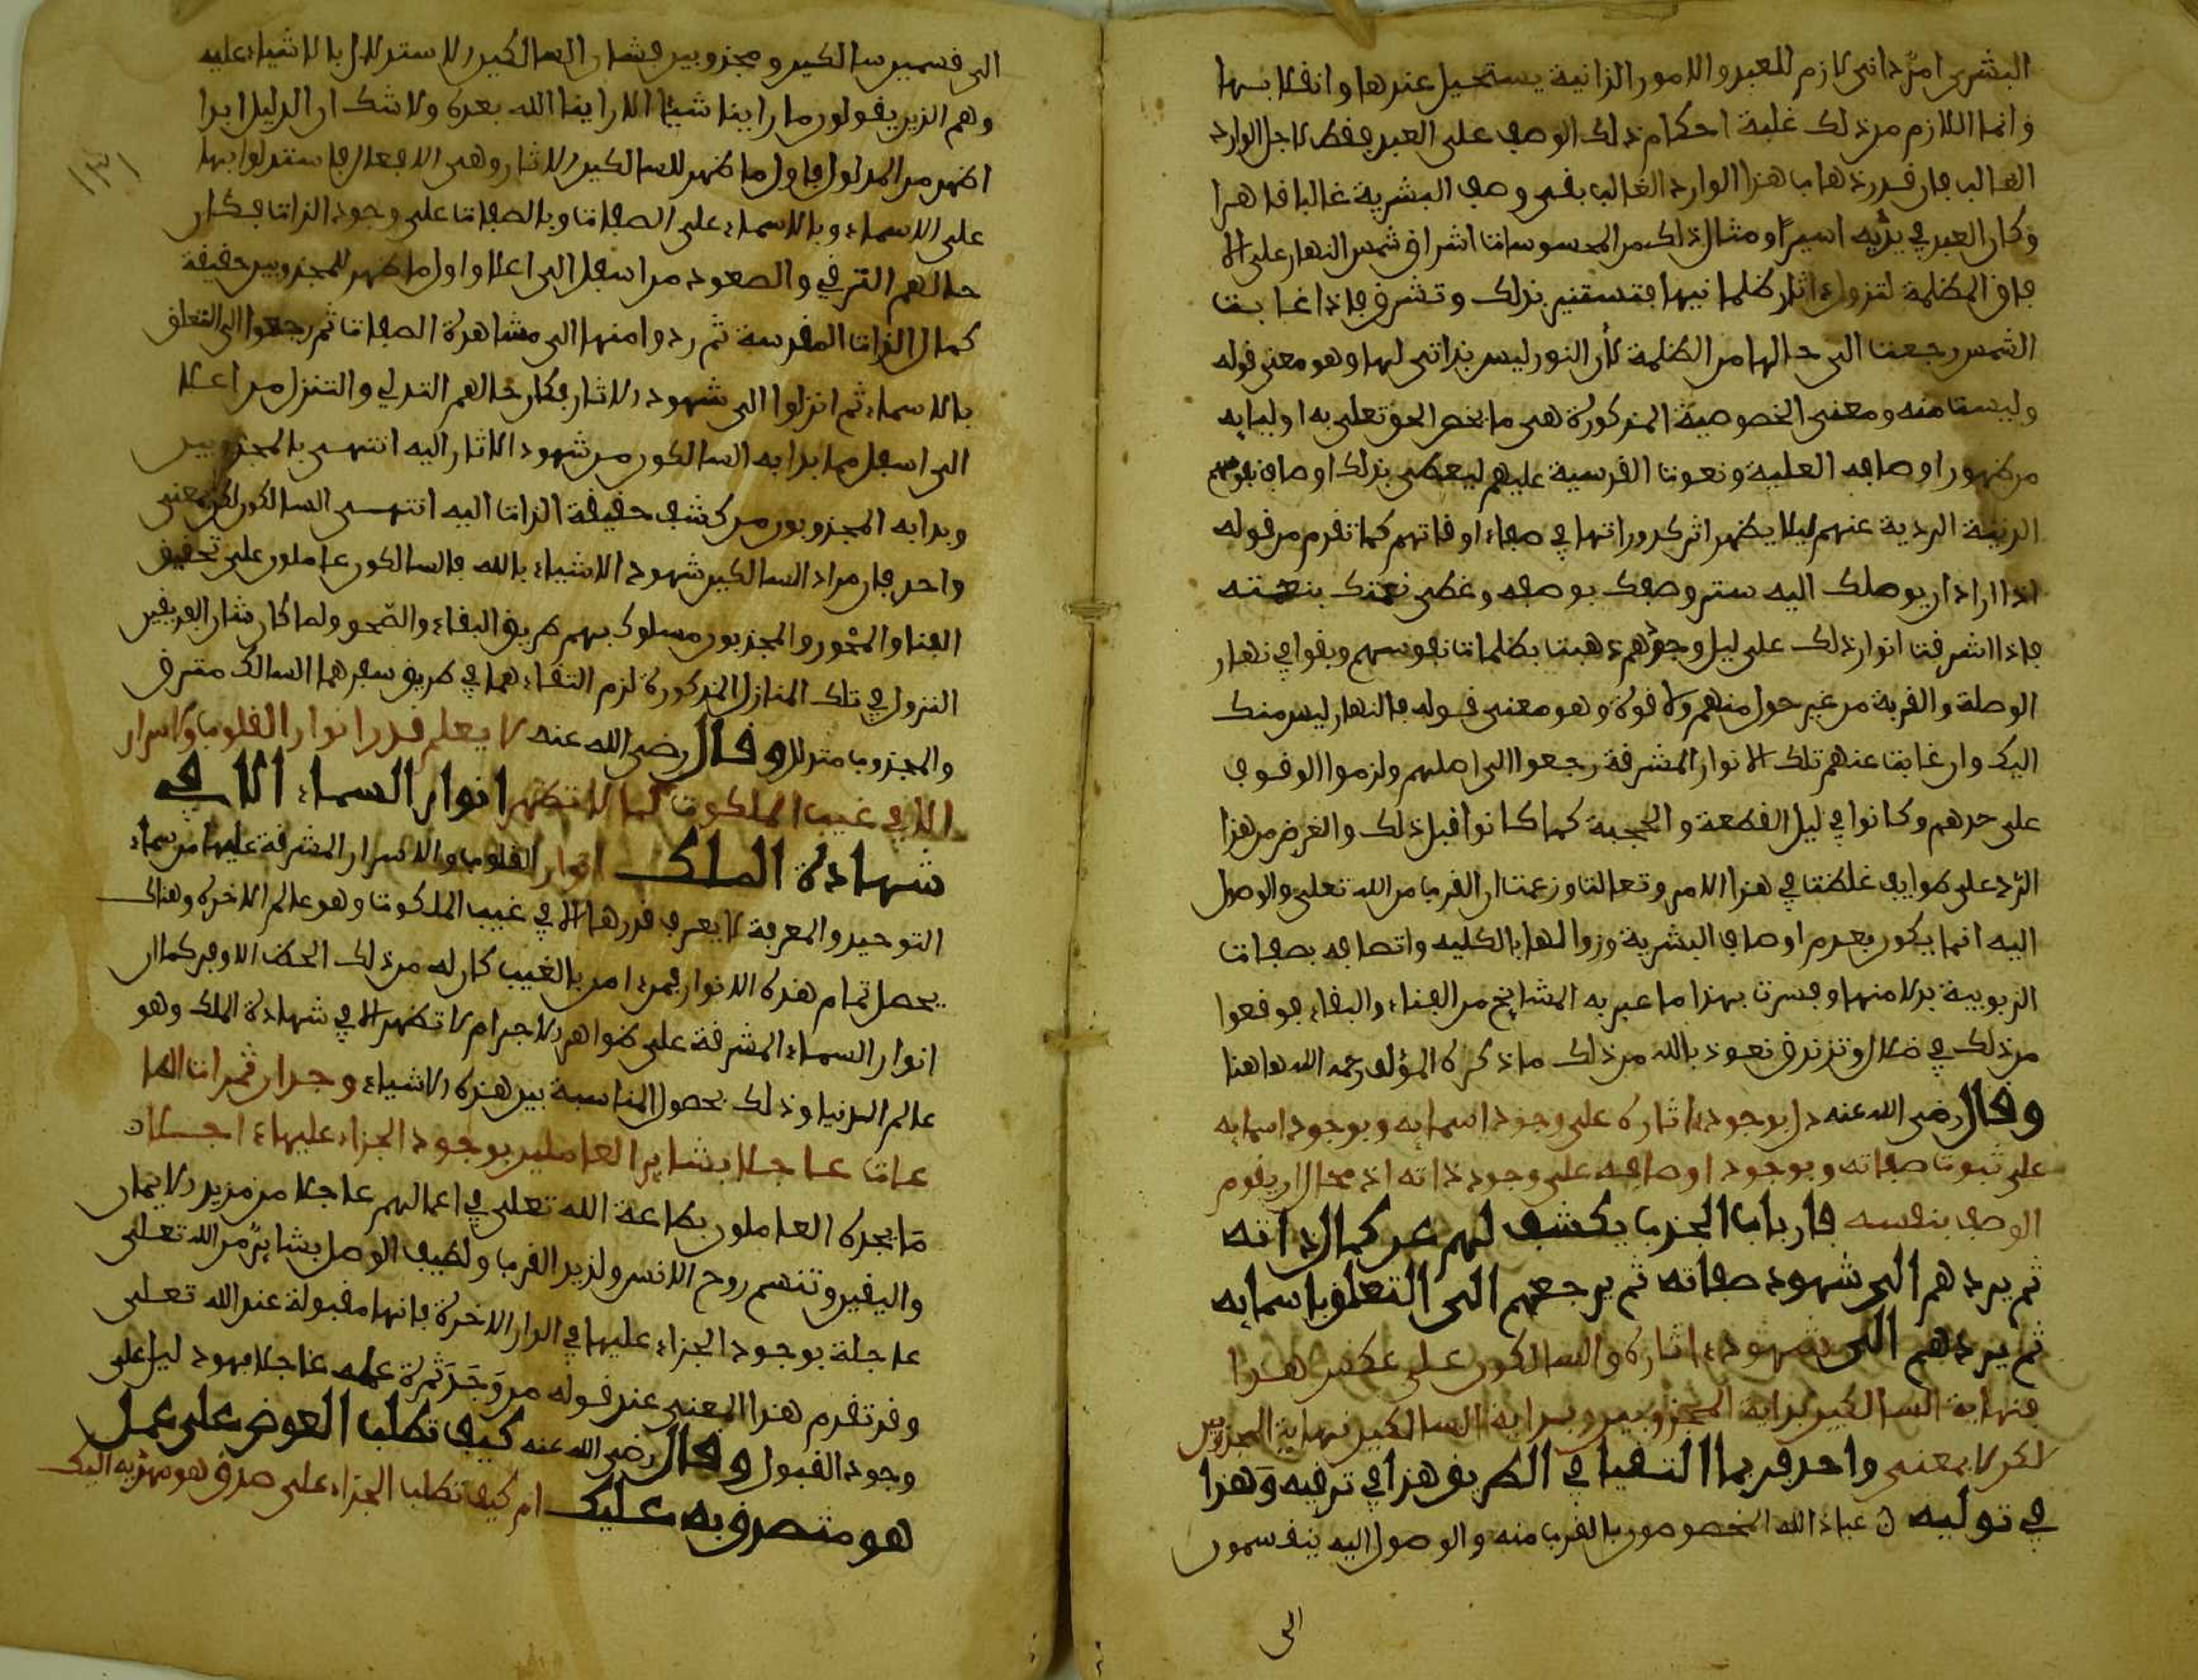 البشرية امر ذاتي لازم للعبد والامور الذاتية يستحيل عندها وانفلابها
وانما اللازم من ذلك غلبة احكام ذلك الوصف على العبد فقط لاجل الوارد
الغالب فان قدر ذهاب هذا الوارد الغالب بقي وصف البشرية غالبا قاهرا
وكان العبد في يديه اسيرا ومثال ذلك من المحسوسات اشراق شمس النهار على الا
فاق المظلمة لتزول اثار ظلمانيها فتستنير بذلك وتشرق فاذا غابت
الشمس رجعت الى حالها من الظلمة لان النور ليس بذاتي لها وهو معنى قوله
وليست منه ومعنى الخصوصية المذكورة هي ما يخص الحق تعلى به اوليايه
من ظهور اوصافه العلية ونعوته القدسية عليهم ليغطي بذلك اوصاف نفوسهم
الدنية الردية عنهم ليلا يظهر اثر كدوراتها في صفاء اوقاتهم كما تقدم من قوله
اذا اراد ان يوصلك اليه ستر وصفك بوصفه وغطى نعتك بنعته
فاذا اشرقت انوار ذلك على ليل وجودهم ذهبت بظلمات نفوسهم وبقوا في نهار
الوصلة والقربة من غير حول منهم ولا قوة وهو معنى قوله فالنهار ليس منك
اليك وان غابت عنهم تلك الانوار المشرقة رجعوا الى اصلهم ولزموا الوقوف
على حدهم وكانوا في ليل القطعة والحجبة كما كانوا قبل ذلك والغرض من هذا
الرد على طوايف غلطت في هذا الامر وتعالت وزعمت ان القرب من الله تعلى والوصول
اليه انما يكون بعدم اوصاف البشرية وزوالها بالكلية واتصافه بصفات
الربوبية بدلا منها وفسرت بهذا ما عبر به المشايخ من الفناء والبقاء فوقعوا
من ذلك في ضلال وتزندق نعوذ بالله من ذلك ما ذكره المؤلف رحمه الله هاهنا
وقال رضي الله عنه دل بوجود اثاره على وجود اسمايه وبوجود اسمايه
على ثبوت صفاته وبوجود اوصافه على وجود ذاته اذ محال ان يقوم
الوصف بنفسه فارباب الجذب يكشف لهم عن كمال ذاته
ثم يردهم الى شهود صفاته ثم يرجعهم الى التعلق باسمايه
ثم يردهم الى شهود اثاره والسالكون على عكس هذا
فنهاية السالكين بداية المجذوبين وبداية السالكين نهاية المجذوبين
لكن لا بمعنى واحد فربما التقيا في الطريق هذا في ترقيه وهذا
في توليه ن عباد الله المخصوصون بالقرب منه والوصول اليه ينقسمون
الى
١٣١
الى قسمين سالكين ومجذوبين فشان السالكين الاستدلال بالاشياء عليه
وهم الذين يقولون ما راينا شيئا الا راينا الله بعده ولا شك ان الدليل ابدا
اظهر من المدلول فاول ما ظهر للسالكين الاثار وهي الافعال فاستدلوا بها
على الاسماء وبالاسماء على الصفات وبالصفات على وجود الذات فكان
حالهم الترقي والصعود من اسفل الى اعلا واول ما ظهر للمجذوبين حقيقة
كمال الذات المقدسة ثم ردوا منها الى مشاهدة الصفات ثم رجعوا الى التعلق
بالاسماء ثم انزلوا الى شهود الاثار فكان حالهم التدلي والتنزل من اعلا
الى اسفل فما بدا به السالكون من شهود الاثار اليه انتهى بالمجذوبين
وبدا به المجذوبون من كشف حقيقة الذات اليه انتهى السالكون لكن بمعنى
واحد فان مراد السالكين شهود الاشياء بالله فالسالكون عاملون على تحقيق
الفنا والمحو والمجذبون مسلوك بهم طريق البقاء والصحو ولما كان شان الفريقين
النزول في تلك المنازل المذكورة لزم التقاءهما في طريق سفرهما السالك مترق
والمجذوب متدل وقال رضي الله عنه لا يعلم قدر انوار القلوب والاسرار
الا في غيب الملكوت كما لا تظهر انوار السماء الا في
شهادة الملك انوار القلوب والاسرار المشرقة عليها من سماء
التوحيد والمعرفة لا يعرف قدرها الا في غيب الملكوت وهو عالم الاخرة وهناك
يحصل تمام هذه الانوار فمن امن بالغيب كان له من ذلك الحظ الاوفر كما ان
انوار السماء المشرقة على ظواهر الاجرام لا تظهر الا في شهادة الملك وهو
عالم الدنيا وذلك بحصول المناسبة بين هذه الاشياء وجدان ثمرات الطا
عات عاجلا بشاير العاملين بوجود الجزاء عليها ءاجلا ن
ما يجده العاملون بطاعة الله تعلى في اعمالهم عاجلا من مزيد الايمان
واليقين وتنسم روح الانس ولذيذ القرب ولطيف الوصل بشاير من الله تعلى
عاجلة بوجود الجزاء عليها في الدار الاخرة فانها مقبولة عند الله تعلى
وقد تقدم هذا المعنى عند قوله من وجد ثمرة عمله عاجلا فهو دليل على
وجود القبول وقال رضي الله عنه كيف تطلب العوض على عمل
هو متصدق به عليك ام كيف تطلب الجزاء على صدق هو مهديه اليك